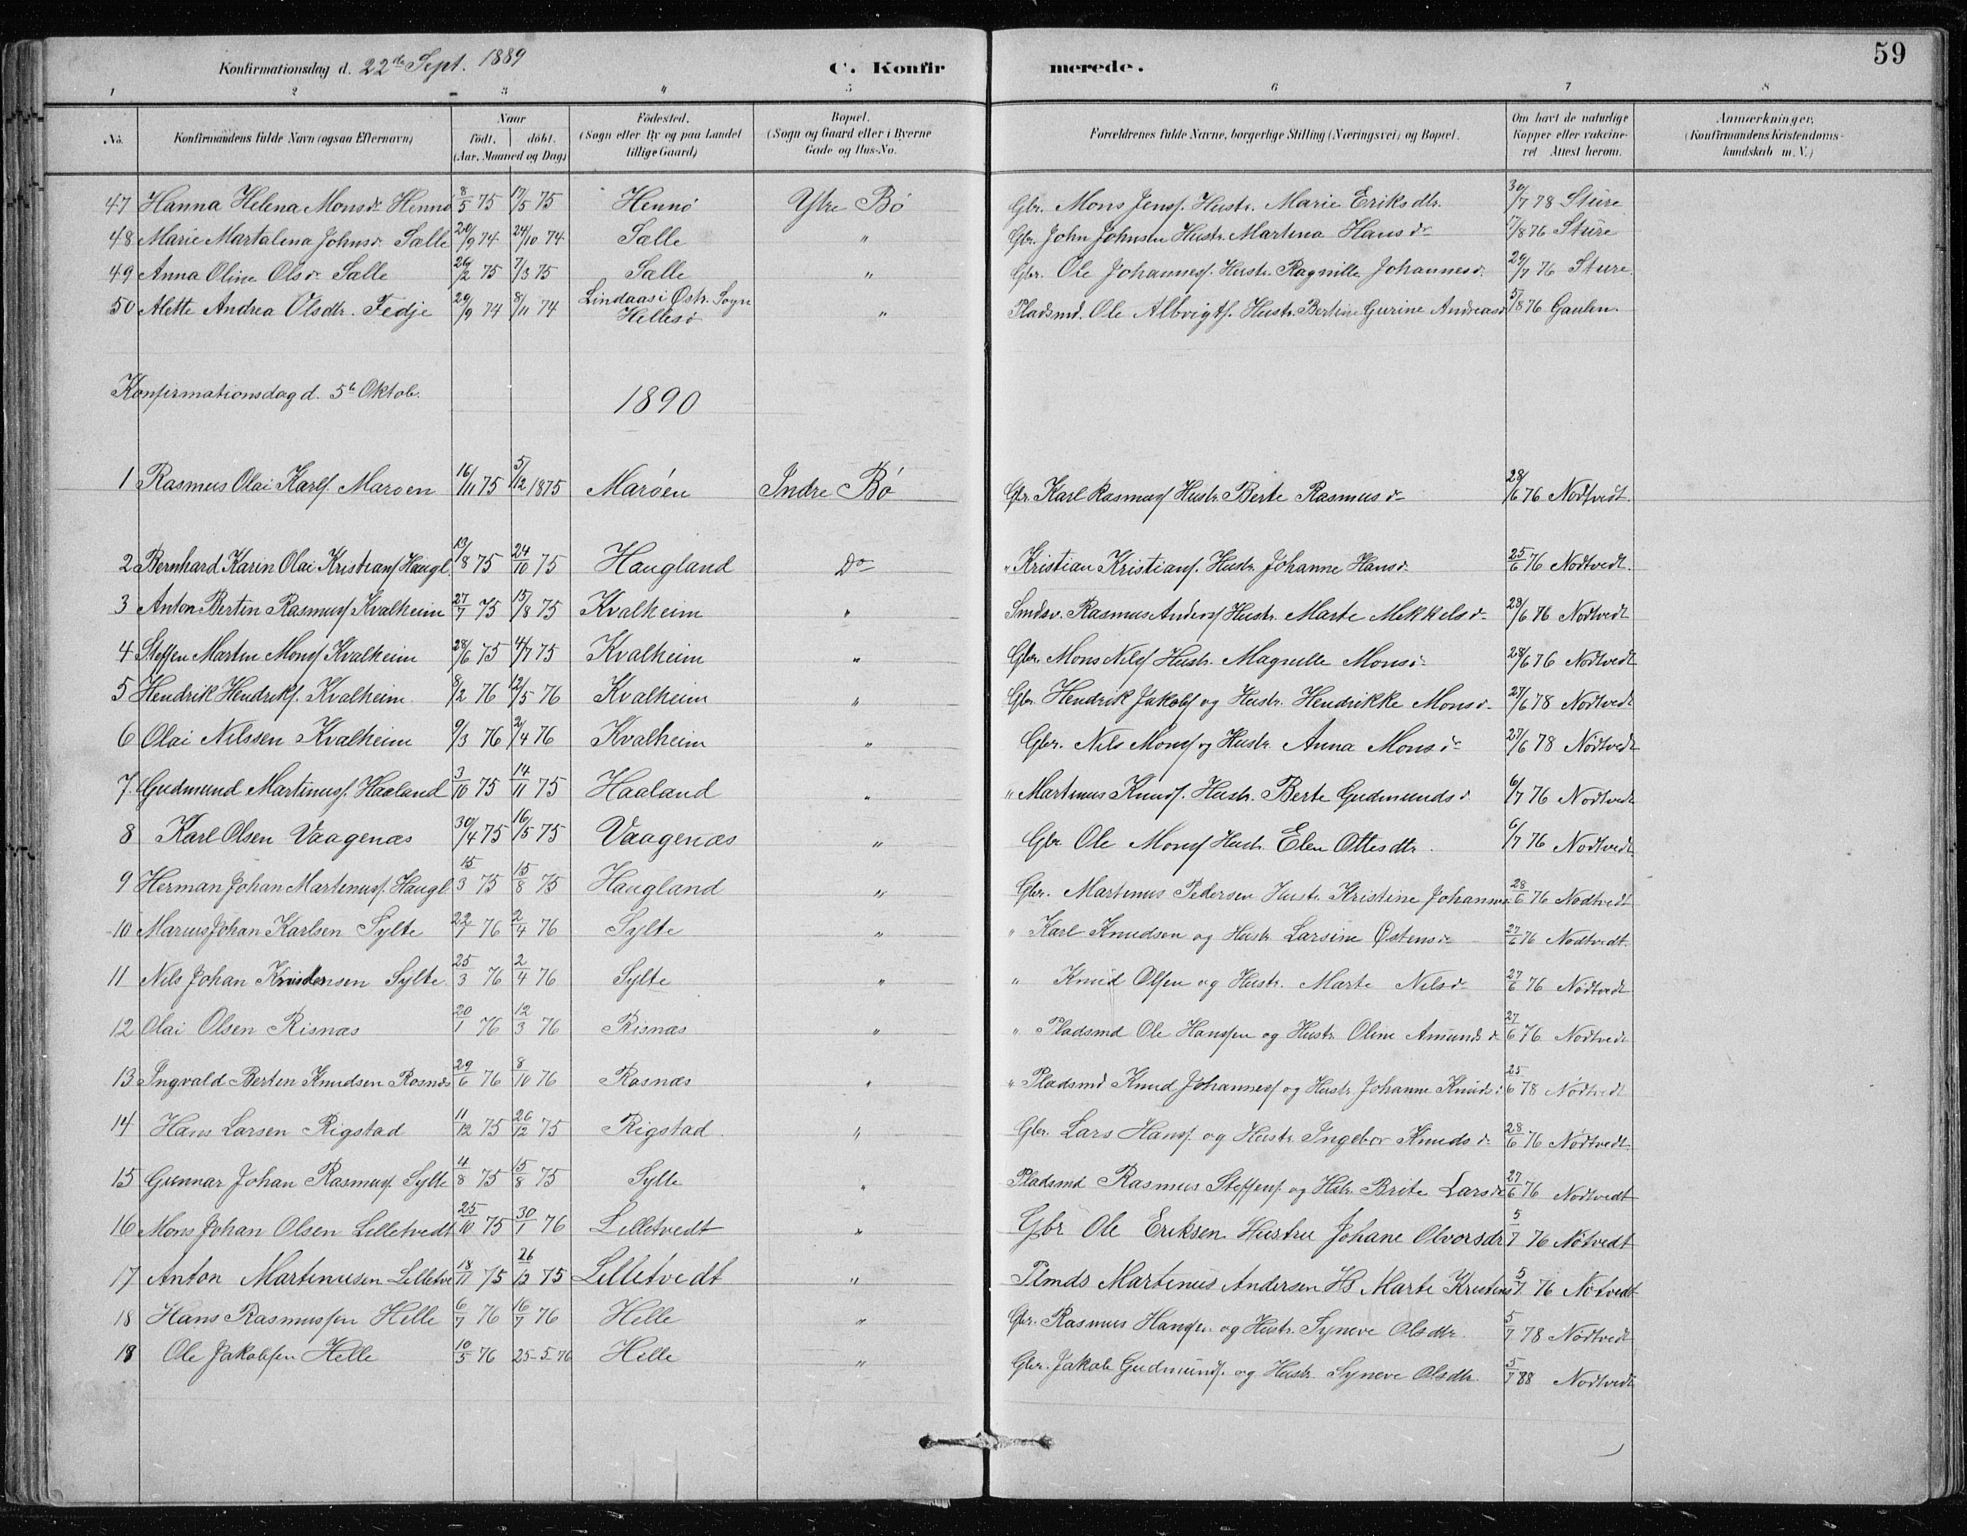 59
Konfirmationsdag d. 22de Sept. 1889 C. Konfirmerede.
1 2 3 4 5 6 7 8
No. Konfirmandens fulde Navn (ogsaa Efternavn) Naar født. døbt. (Aar, Maaned og Dag) Fødested. (Sogn eller By og paa Landet tillige Gaard) Bopæl. (Sogn og Gaard eller i Byerne Gade og Hus-No. Forældrenes fulde Navne, borgerlige Stilling (Næringsvei) og Bopæl. Om havt de naturlige Kopper eller vakcineret Attest herom. Anmærkninger. (Konfirmandens Kristendomskundskab m. V.)
47 Hanna Helena Monsdr Hennø 8/5 75 17/5 75 Hennø Ytre Bø Gbr. Mons Jensf. Hustr. Marie Eriksdtr. 30/7 78 Sture
48 Marie Martalena Johnsd. Sælle 20/9 74 24/10 74 Sælle " Gbr. John Johnsen Hustr. Martina Hansdr 17/8 76 Sture
49 Anna Oline Olsdr Sælle 26/2 75 7/3 75 Sælle " Gbr. Ole Johannesf. Hustr. Ragnille Johannesd. 29/7 76 Sture
50 Alette Andrea Olsdtr. Fedje 29/9 74 8/11 74 Lindaas i Østr. Sogn Hillesø " Pladsmd. Ole Albrigtf. Hustr. Bertine Gurine Andreasd 5/8 76 Gaulen.
Konfirmationsdag d. 5te Oktob. 1890
1 Rasmus Olai Karlf. Marøen 16/11 75 5/12 1875 Marøen Indre Bø Gbr. Karl Rasmusf Hustr. Berte Rasmusdr 28/6 76 Nødtvedt.
2 Bernhard Karin Olai Kristianf Haugl. 13/8 75 24/10 75 Haugland Do " Kristian Kristianf. Hustr. Johanne Hansd. 25/6 76 Nødtvedt.
3 Anton Bertin Rasmusf Kvalheim 27/7 75 15/8 75 Kvalheim " Smdsv. Rasmus Andersf Hustr. Marte Mekkelsdr 28/6 76 Nødtvedt
4 Steffen Martin Monsf Kvalheim 28/6 75 4/7 75 Kvalheim " Gbr. Mons Nilsf Hustr. Magnille Monsdr 28/6 76 Nødtvedt
5 Hendrik Hendrikf. Kvalheim 8/2 76 12/5 76 Kvalheim " Gbr. Hendrik Jakobf og Hustr. Hendrikke Monsdr 27/6 78 Nødtvedt
6 Olai Nilssen Kvalheim 9/3 76 2/4 76 Kvalheim " Gbr. Nils Monsf og Hustr. Anna Monsdr 27/6 78 Nødtvedt
7. Gudmund Martinusf. Haaland 3/10 75 14/11 75 Haaland " " Martinus Knudf. Hustr. Berte Gudmundsd 6/7 76 Nødtvedt
8 Karl Olsen Vaagenæs 30/4 75 16/5 75 Vaagenæs " Gbr. Ole Monsf Hustr. Elen Ottesdtr. 6/7 76 Nødtvedt
9 Herman Johan Martinusf. Haugl 15/3 75 15/8 75 Haugland " Gbr. Martinus Pedersen Hustr. Kristine Johannes 28/6 76 Nødtvedt
10 Marius Johan Karlsen Sylte 22/1 76 2/4 76 Sylte " " Karl Knudsen og Hustr Larsine Østensdr 27/6 76 Nødtvedt.
11 Nils Johan Knudsen Sylte 25/3 76 2/4 76 Sylte " " Knud Olsen og Hustr. Marte Nilsdr 27/6 76 Nødtvedt
12 Olai Olsen Risnæs 20/1 76 12/3 76 Risnæs " " Pladsmd Ole Hanssen og Hustr. Oline Amundsd 27/6 76 Nødtvedt
13 Ingvald Berten Knudsen Rosnæs 29/6 76 8/10 76 Rosnæs " " Pladsmd Knud Johannesf og Hustr Johanne Knudsd 25/6 78 Nødtvedt
14 Hans Larsen Rigstad 11/12 75 26/12 75 Rigstad " Gbr. Lars Hansf. og Hustr. Ingebor Knudsdr 28/6 76 Nødtvedt.
15 Gunnar Johan Rasmusf Sylte 4/8 75 15/8 75 Sylte " Pladsmd Rasmus Steffensf. og Hstr. Brite Larsdr 27/6 76 Nødtvedt
16 Mons Johan Olsen Lilletvedt 25/10 75 30/1 76 Lilletvedt " Gbr Ole Eriksen Hustru Johane Olvorsdr 5/7 76 Nøtvedt
17 Anton Martinusen Lilletve 18/11 75 26/12 75 Lilletvedt " Plmds Martinus Andersen Hs Marte Kristens 5/7 76 Nøtvedt
18 Hans Rasmussen Helle 6/7 76 16/7 76 Helle " Gbr. Rasmus Hansen og Hustr. Syneve Olsdtr. 5/7 78 Nødtvedt
18 Ole Jakobsen Helle 10/5 76 25-5 76 Helle " Gbr. Jakob Gudmundf. og Hustr Syneve Olsdtr. 5/7 88 Nødtvedt